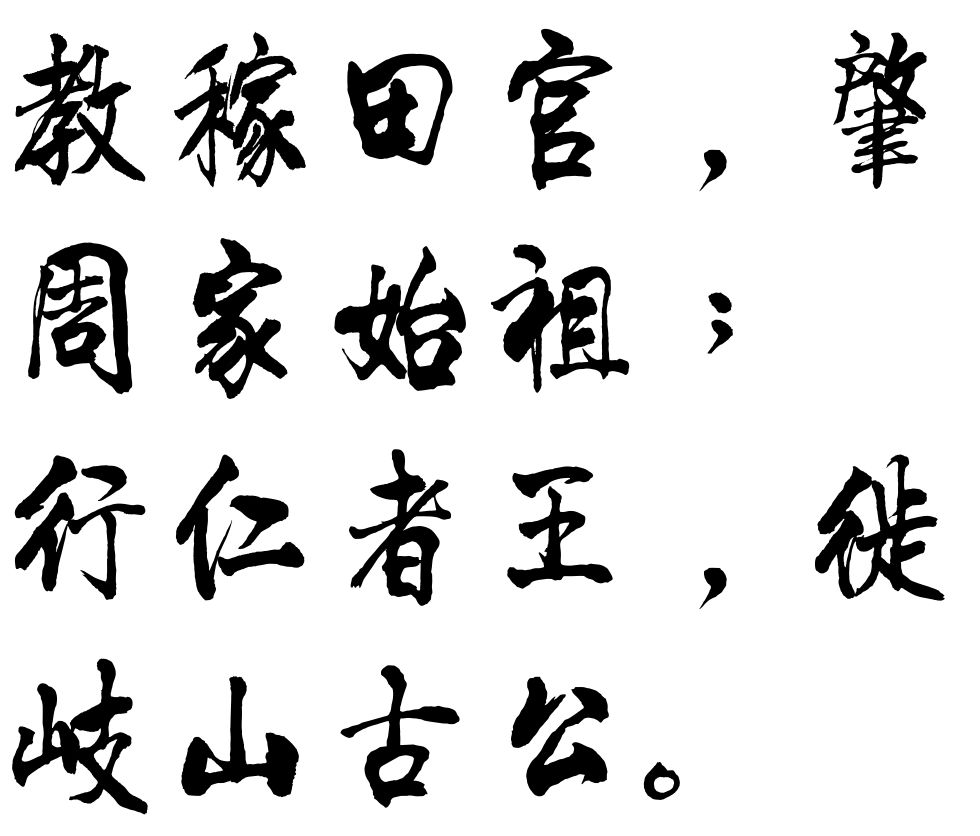 教稼田官，肇
周家始祖；
行仁者王，徙
岐山古公。